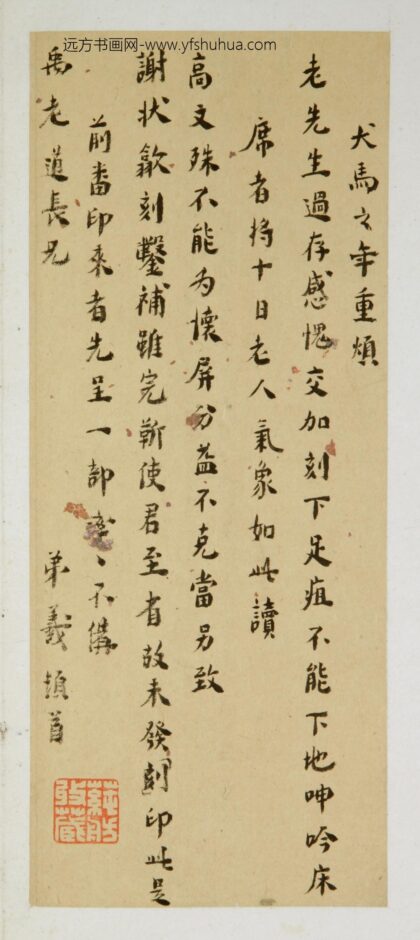 远方书画网-www.yfshuhua.com
犬馬之年重煩
老先生過存感愧交加刻下足疽不能下地呻吟床
席者将十日老人氣象如此讀
高文殊不能为懐屏分益不克當另致
謝状歙刻鑿補雖完靳使君至省故未發刻印此是
前畨印来者先呈一部 不備
禹老道長兄
弟羲頓首